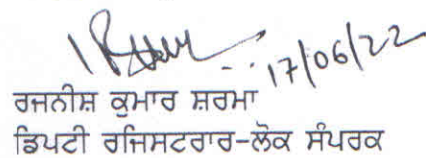 17/06/22
ਰਜਨੀਸ਼ ਕੁਮਾਰ ਸ਼ਰਮਾ
ਡਿਪਟੀ ਰਜਿਸਟਰਾਰ-ਲੋਕ ਸੰਪਰਕ